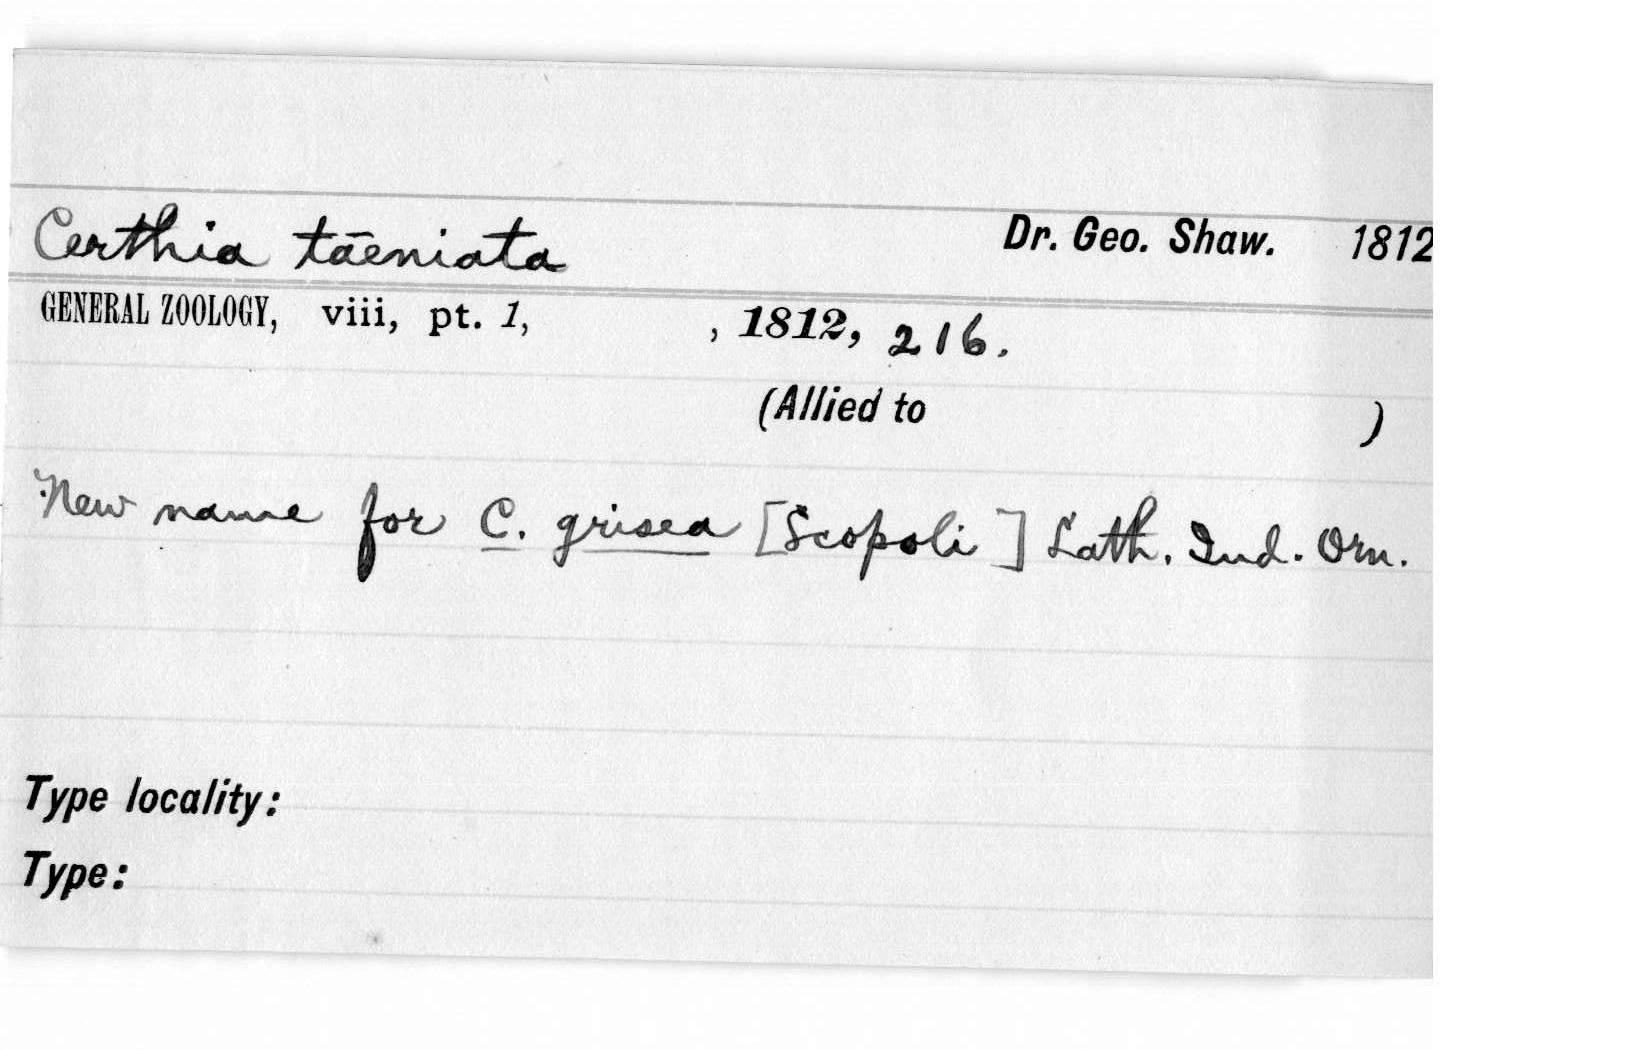 Certhia tāeniata Dr. Geo. Shaw. 1812
GENERAL ZOOLOGY, viii, pt. 1, , 1812, 216.
(Allied to )
New name for C. grisea [Scopoli] Lath. Ind. Orn.
Type locality:
Type: